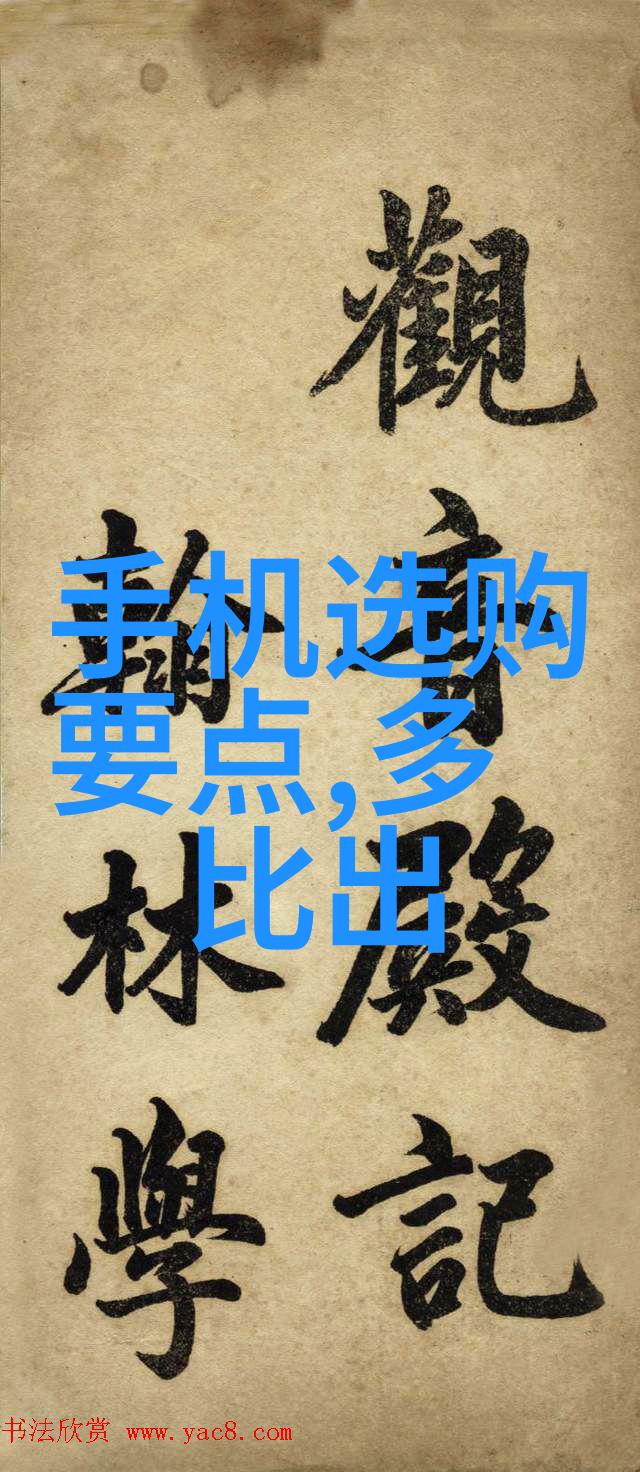 觀音殿記
翰林學
手机选购
要点,多
比出
书法欣赏 www.yac8.com